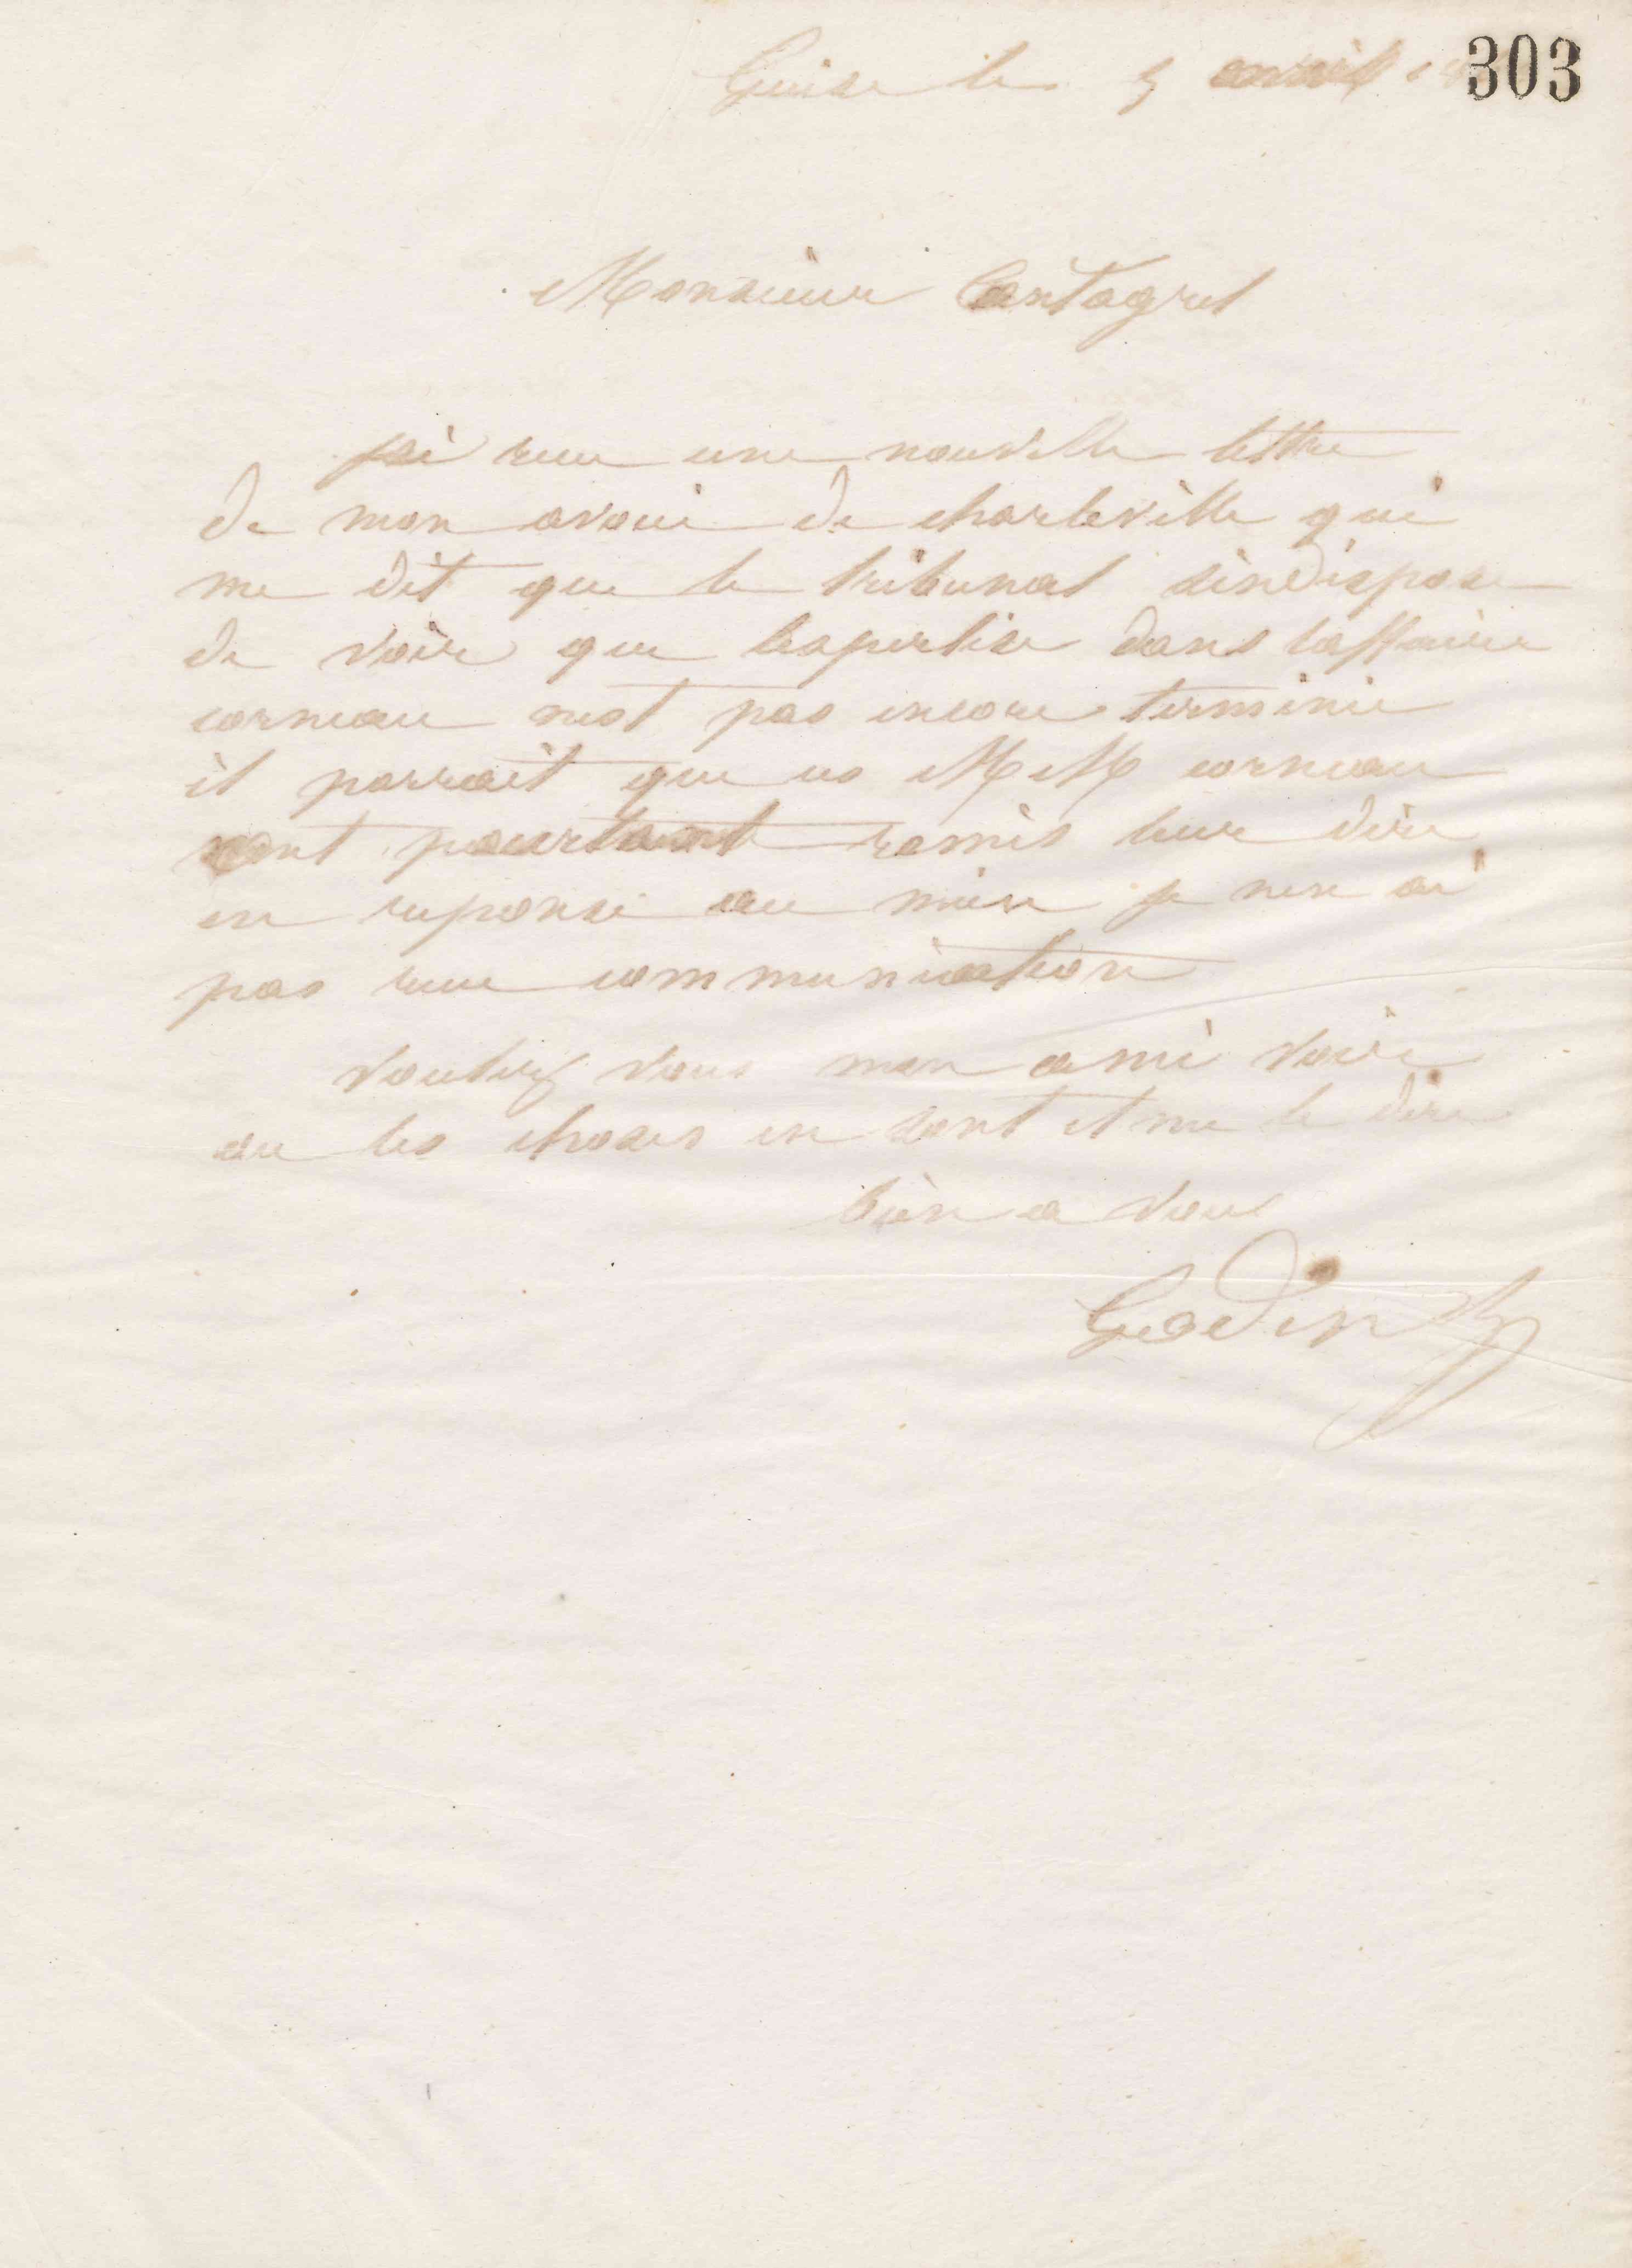 303
Guise le 5 avril
Monsieur Cantagrel
jai recu une nouvelle lettre
de mon avoué de charleville qui
me dit que le tribunal sindispose
de voir que lexpertise dans laffaire
corneau nest pas encore terminée
il parrait que ces MM corneau
ont pourtant remis leur dire
en reponse au mien je nen ai
pas recu communication
voulez vous mon ami voir
ou les choses en sont et me le dire
bien a vous
Godin